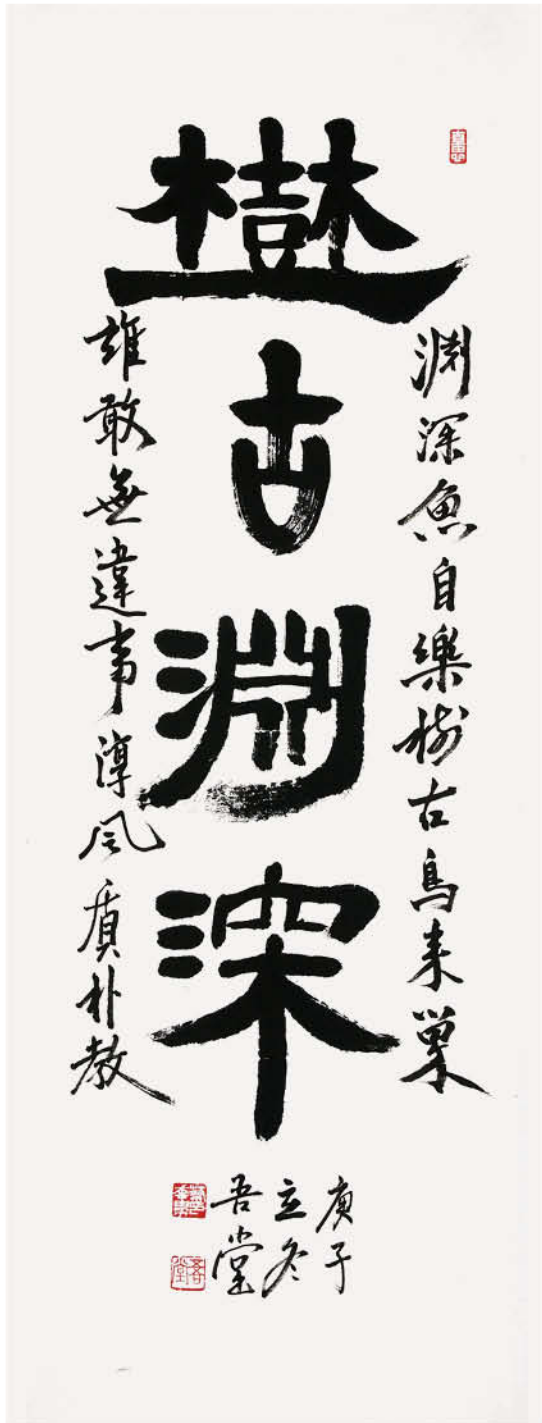 樹古淵深
淵深魚自樂樹古鳥来巢
誰敢無違事淳風質朴教
庚子
立冬
吾堂
吾堂